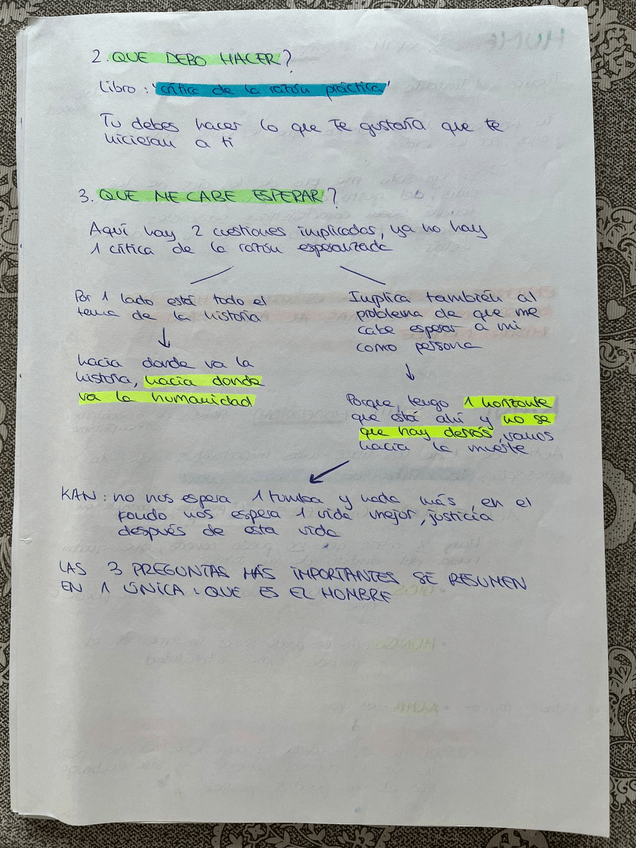 2. QUE DEBO HACER?
Libro: "crítica de la razón práctica"
Tu debes hacer lo que te gustaría que te
hicieran a ti
3. QUE ME CABE ESPERAR?
Aquí hay 2 cuestiones implicadas, ya no hay
1 crítica de la razón especializada
Por 1 lado está todo el
tema de la historia
hacia donde va la
historia, hacia donde
va la humanidad
Implica también al
problema de que me
cabe esperar a mi
como persona
Porque, tengo 1 horizonte
que está ahí y no se
que hay detrás, vamos
hacia la muerte
KAN: no nos espera 1 tumba y nada más, en el
fondo nos espera 1 vida mejor, justicia
después de esta vida
LAS 3 PREGUNTAS MÁS IMPORTANTES SE RESUMEN
EN 1 ÚNICA: QUE ES EL HOMBRE